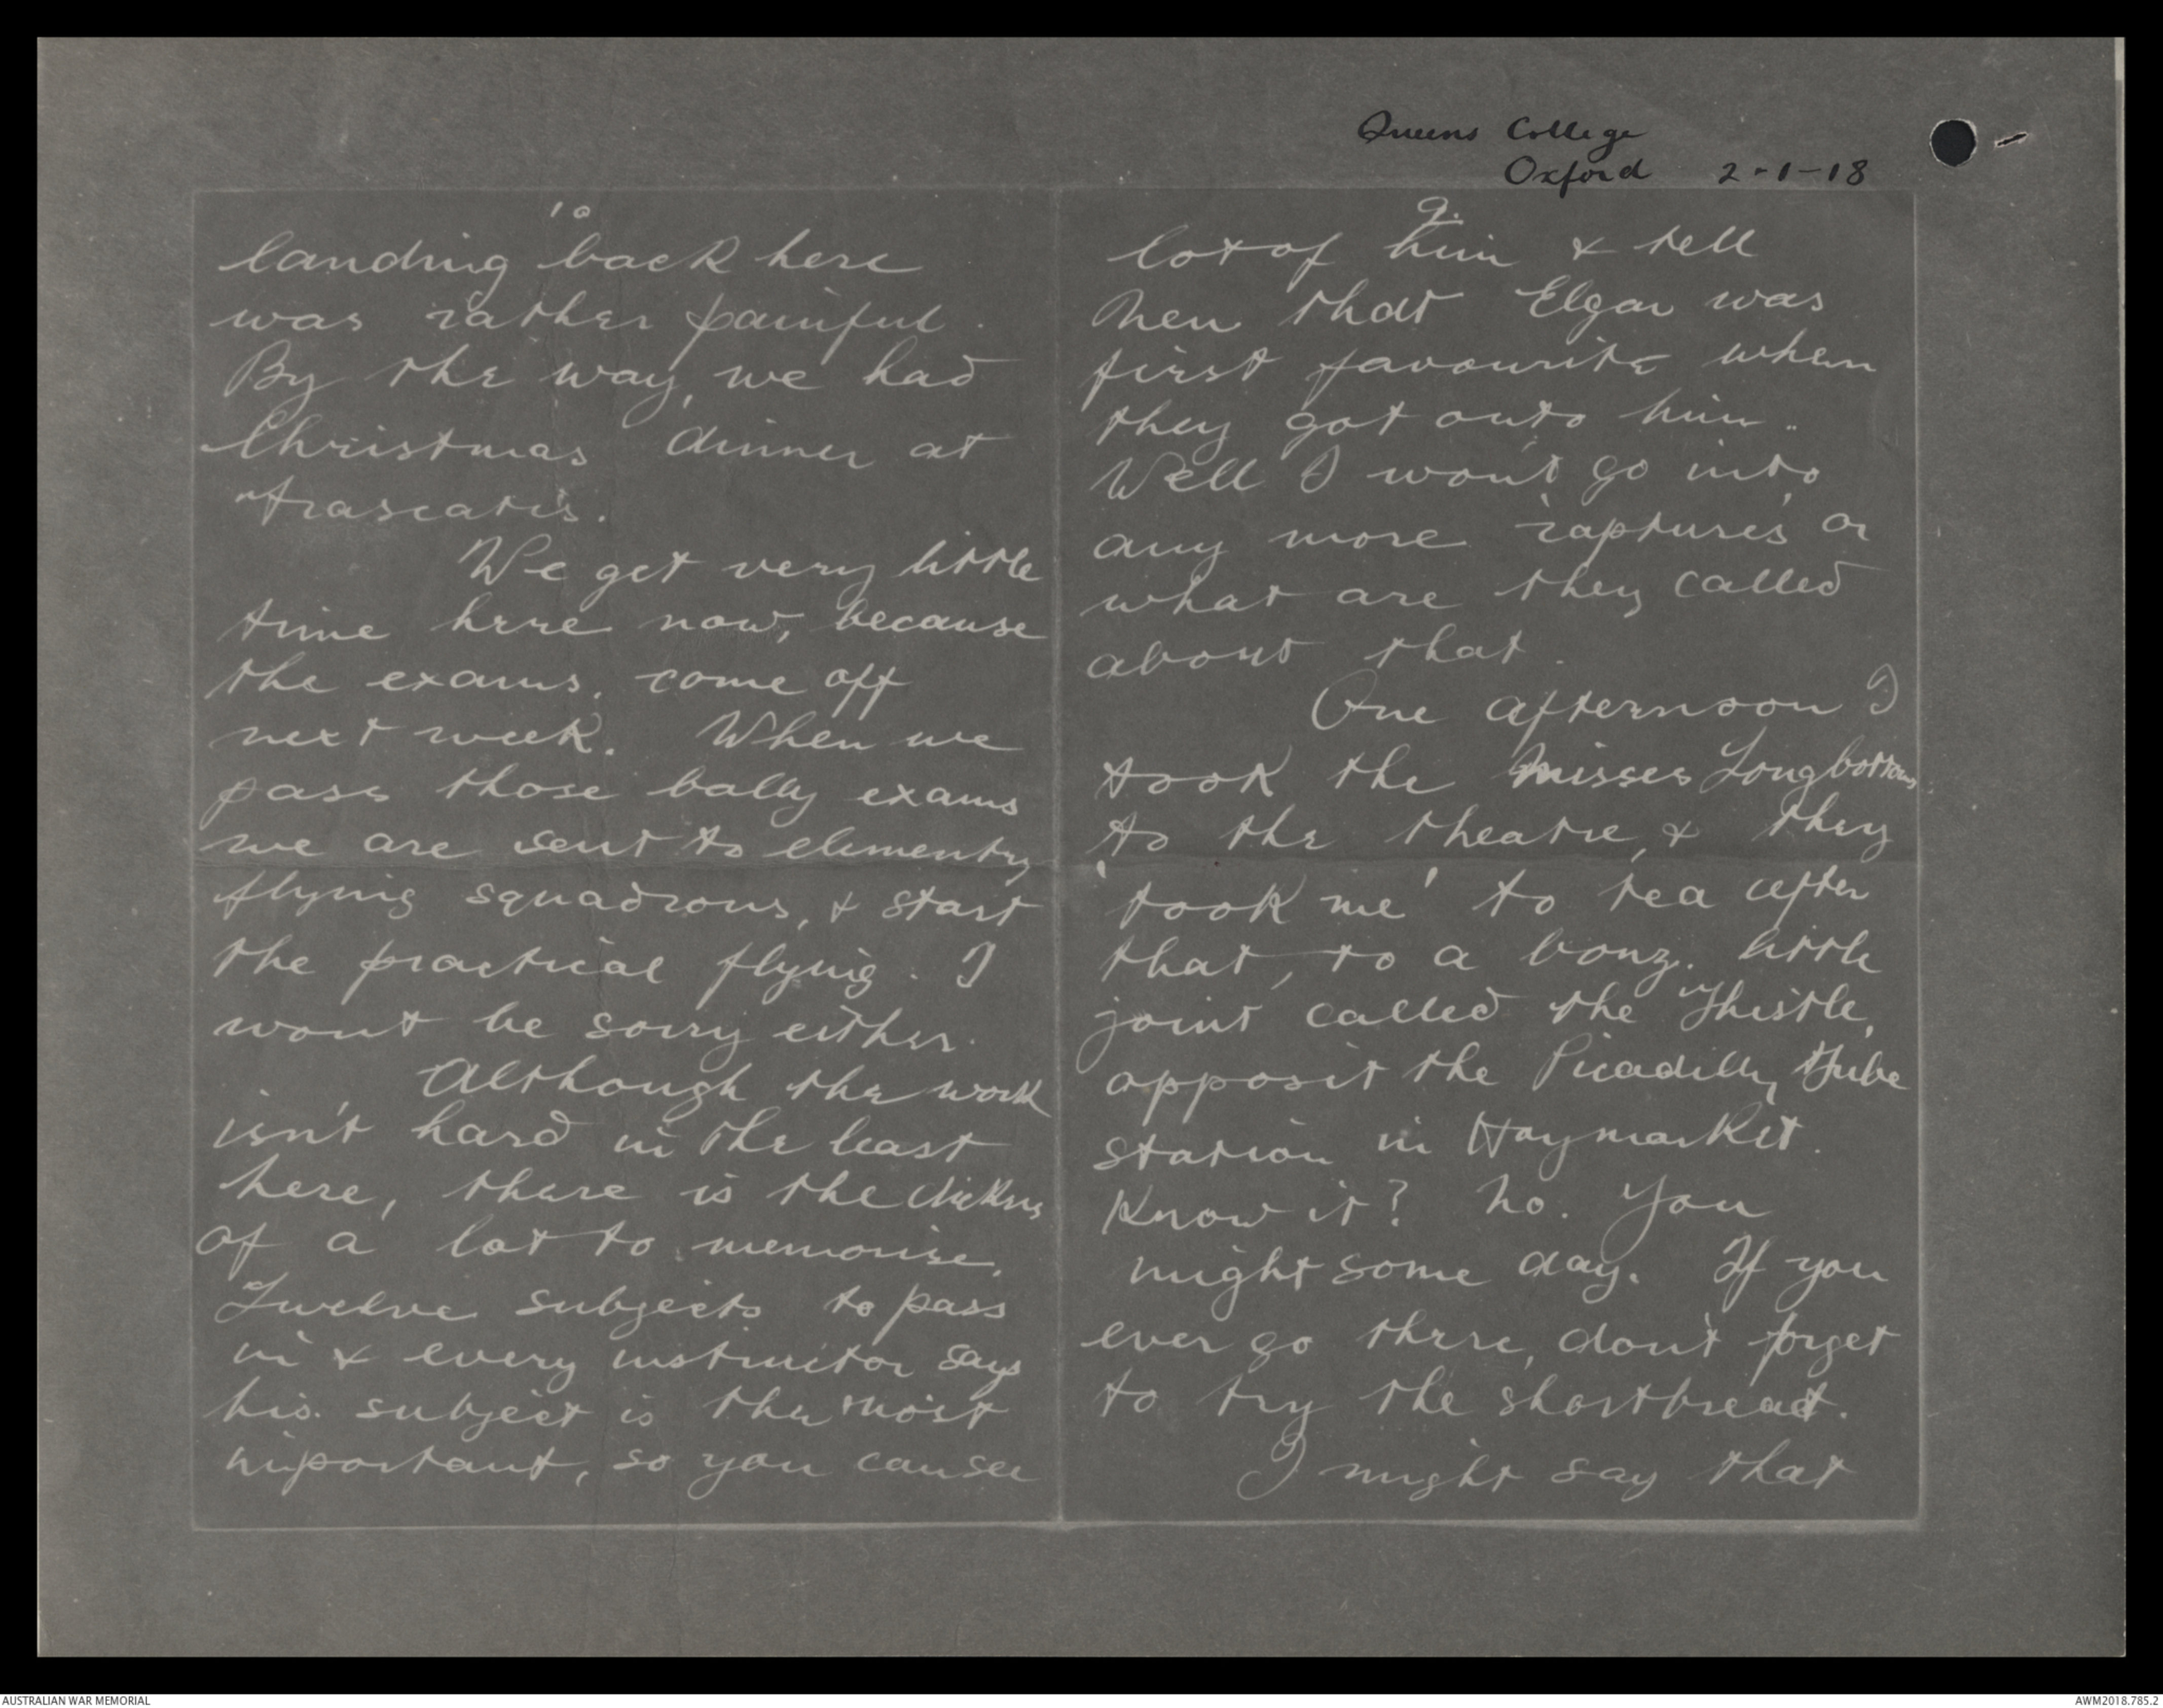 Queens College
Oxford 2-1-18
9.
lot of him & tell
then that Elgar was
first favourite when
they got onto him.
Well I won't go into
any more 'raptures' or
what are they called
about that.
One afternoon I
took the Misses Longbottom
to the theatre, & they
'took me' to tea after
that, to a bonz. little
joint called the Thistle,
opposit the Picadilly Tube
station in Haymarket.
Know it? No. You
might some day. If you
ever go there, don't forget
to try the shortbread.
I might say that
10
landing back here
was rather painful.
By the way, we had
Christmas dinner at
Frascatis.
We get very little
time here now, because
the exams. come off
next week. When we
pass those bally exams
we are sent to elementry
flying squadrons, & start
the practical flying. I
wont be sorry either.
Although the work
isn't hard in the least
here, there is the dickens
of a lot to memorise.
Twelve subjects to pass
in & every instructor says
his subject is the most
important, so you can see
AUSTRALIAN WAR MEMORIAL
AWM2018.785.2